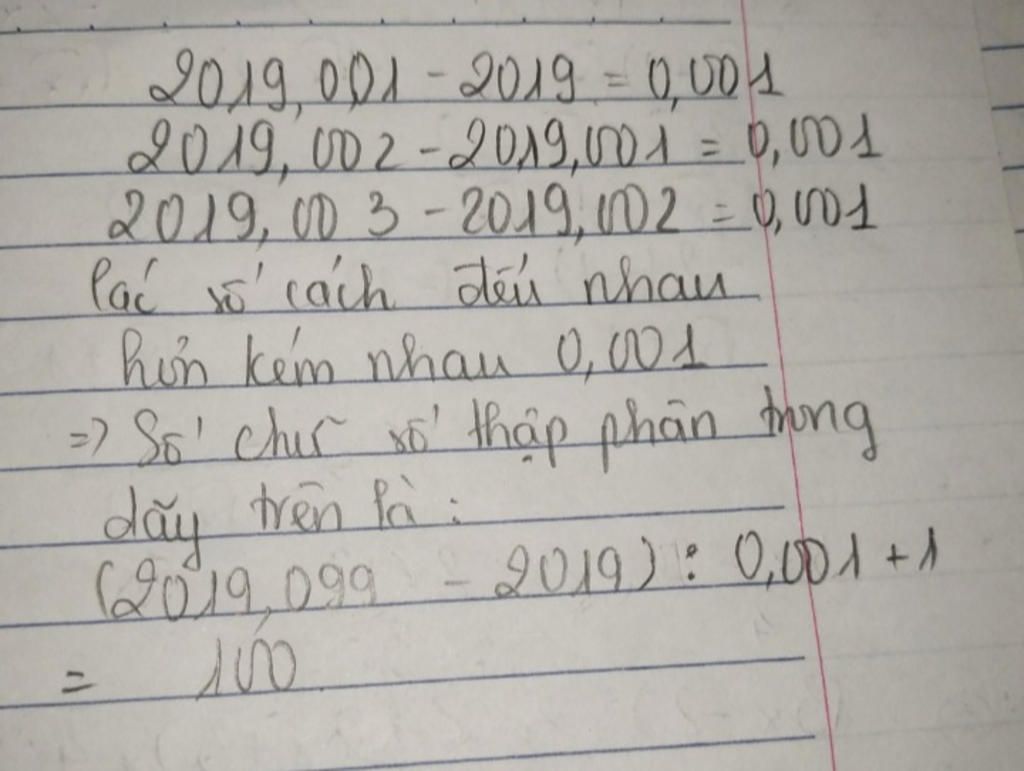 2019,001 - 2019 = 0,001
2019,002 - 2019,001 = 0,001
2019,003 - 2019,002 = 0,001
Các số cách đều nhau
hơn kém nhau 0,001
=> Số chữ số thập phân trong
dãy trên là :
(2019,099 - 2019) : 0,001 + 1
= 100